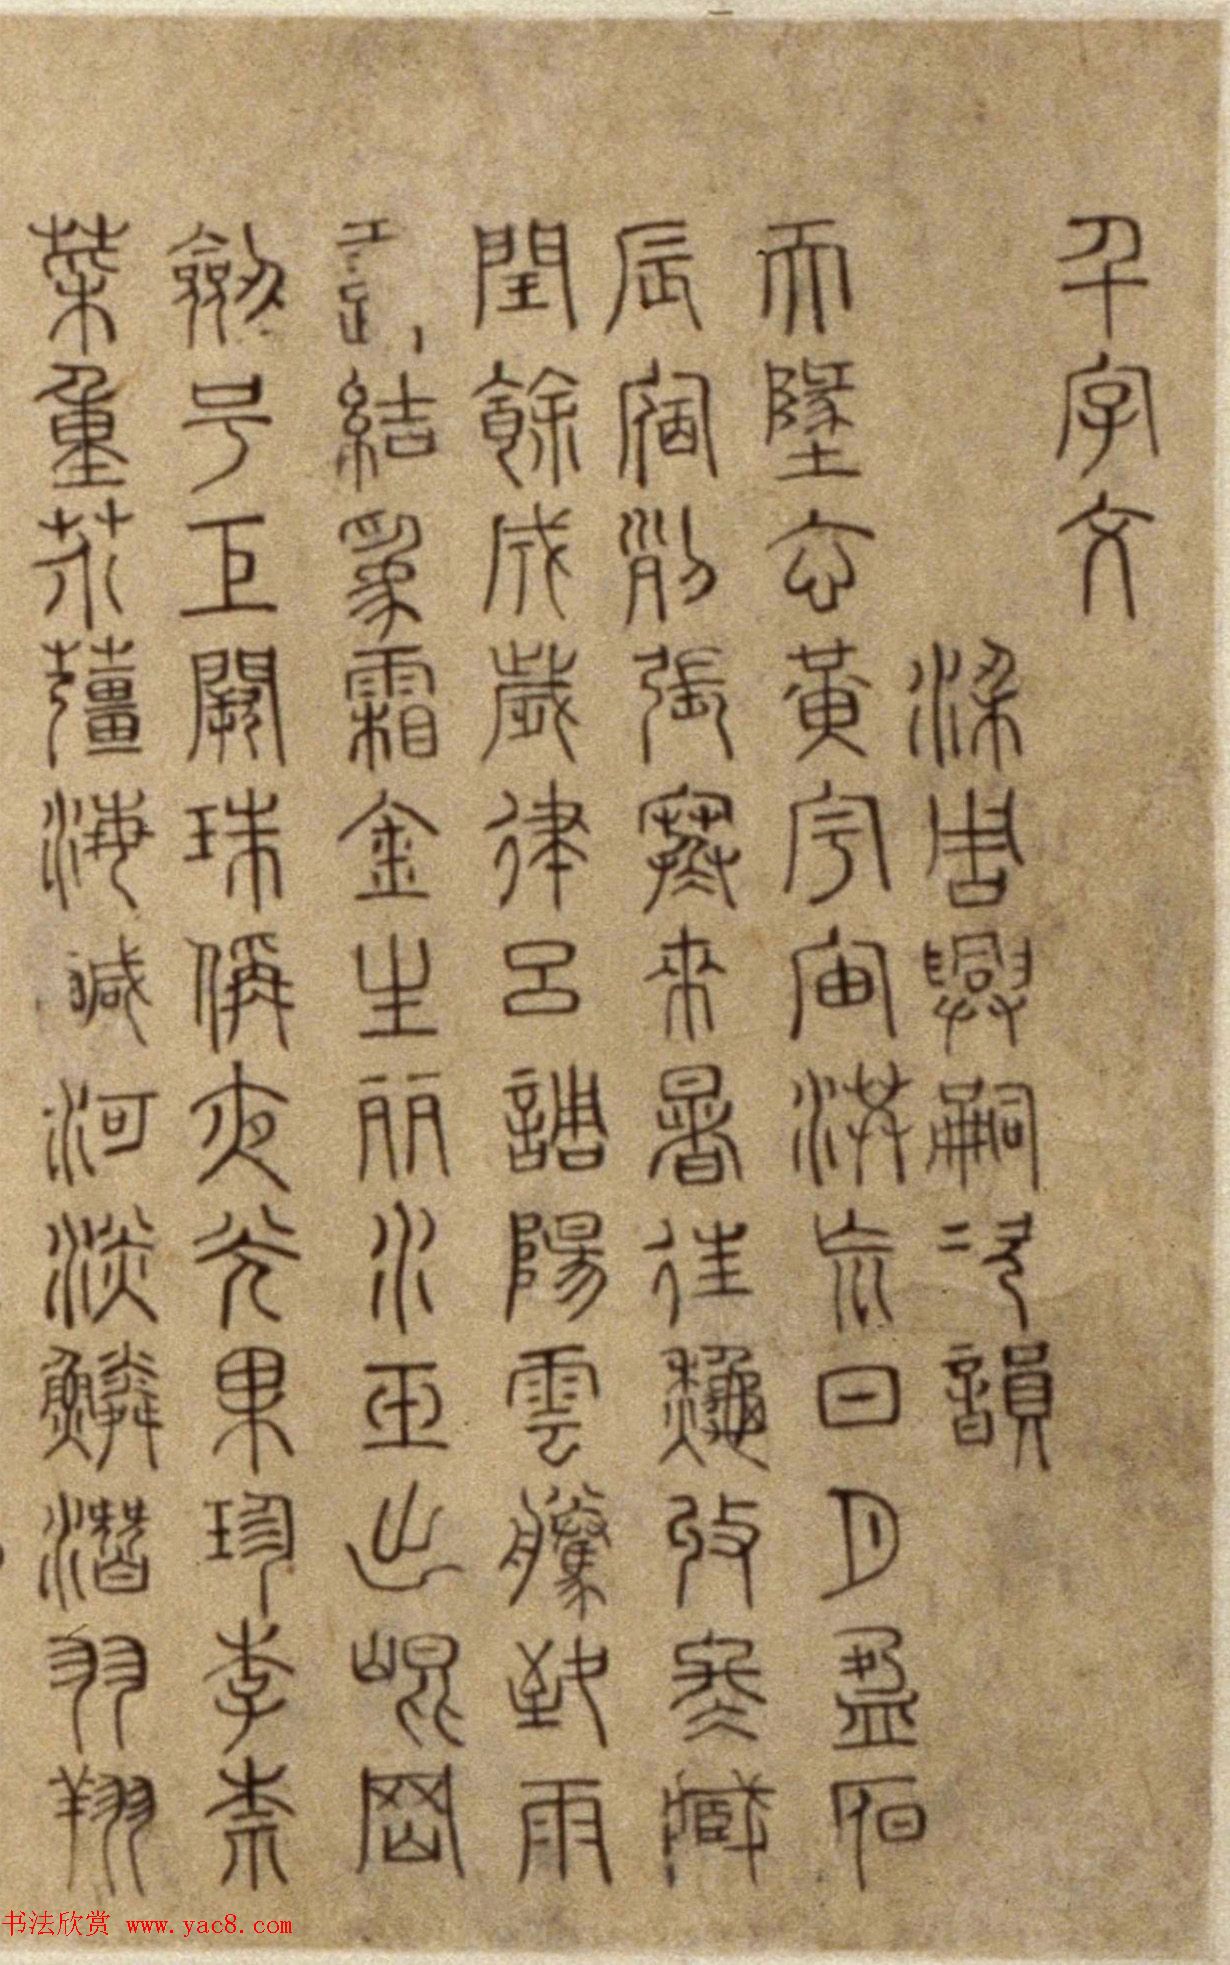 千字文
梁周興嗣次韻
天地玄黃宇宙洪荒日月盈昃
辰宿列張寒來暑往秋收冬藏
閏餘成歲律呂調陽雲騰致雨
露結為霜金生麗水玉出崐岡
劍号巨闕珠稱夜光果珍李柰
菜重芥薑海鹹河淡鱗潛羽翔
书法欣赏 www.yac8.com